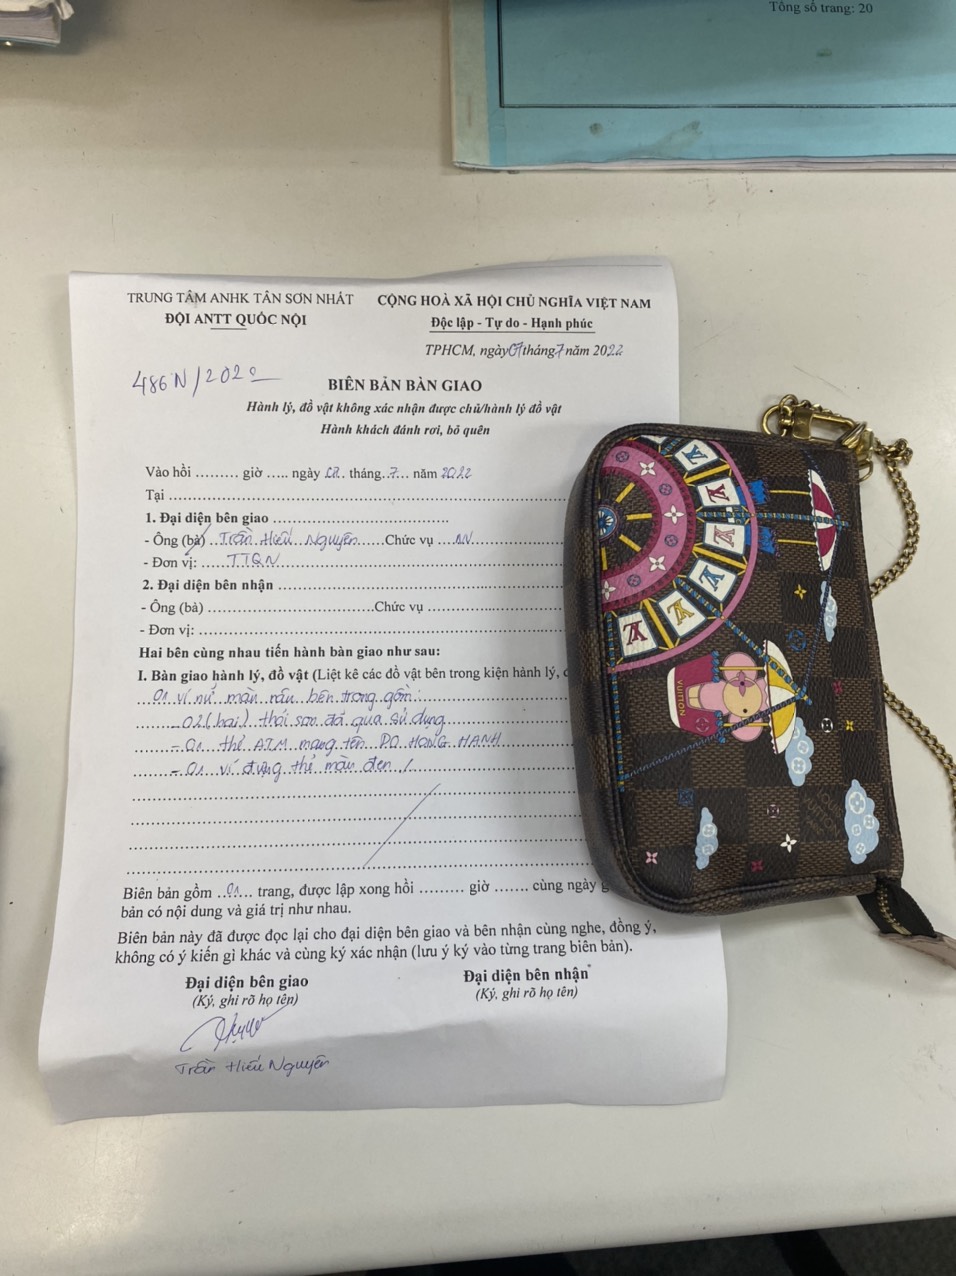 Tổng số trang: 20
TRUNG TÂM ANHK TÂN SƠN NHẤT
ĐỘI ANTT QUỐC NỘI
CỘNG HOÀ XÃ HỘI CHỦ NGHĨA VIỆT NAM
Độc lập - Tự do - Hạnh phúc
TPHCM, ngày 07 tháng 7 năm 2022
486N/2022
BIÊN BẢN BÀN GIAO
Hành lý, đồ vật không xác nhận được chủ/hành lý đồ vật
Hành khách đánh rơi, bỏ quên
Vào hồi ......... giờ ..... ngày ... tháng 7 năm 2022
Tại
1. Đại diện bên giao
- Ông (bà) Trần Hiếu Nguyên Chức vụ NV
- Đơn vị: TTQN
2. Đại diện bên nhận
- Ông (bà) Chức vụ
- Đơn vị:
Hai bên cùng nhau tiến hành bàn giao như sau:
I. Bàn giao hành lý, đồ vật (Liệt kê các đồ vật bên trong kiện hành lý,
01 ví nữ màu nâu bên trong gồm:
- 02 (hai) thỏi son đã qua sử dụng
- 01 thẻ ATM mang tên DO HONG HANH
- 01 ví đựng thẻ màu đen /
Biên bản gồm 01 trang, được lập xong hồi ......... giờ ....... cùng ngày
bản có nội dung và giá trị như nhau.
Biên bản này đã được đọc lại cho đại diện bên giao và bên nhận cùng nghe, đồng ý,
không có ý kiến gì khác và cùng ký xác nhận (lưu ý ký vào từng trang biên bản).
Đại diện bên giao
(Ký, ghi rõ họ tên)
Trần Hiếu Nguyên
Đại diện bên nhận
(Ký, ghi rõ họ tên)
VUITTON